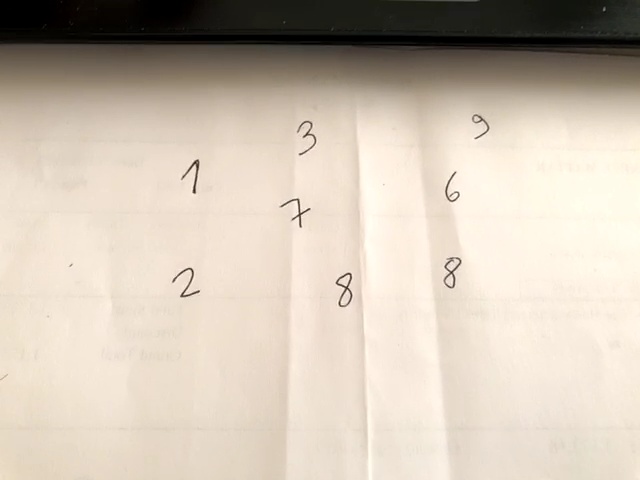 3 9
1 6
7
2 8 8